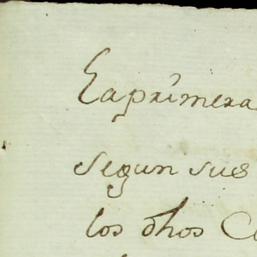 La primera
segun sus
los dhos C